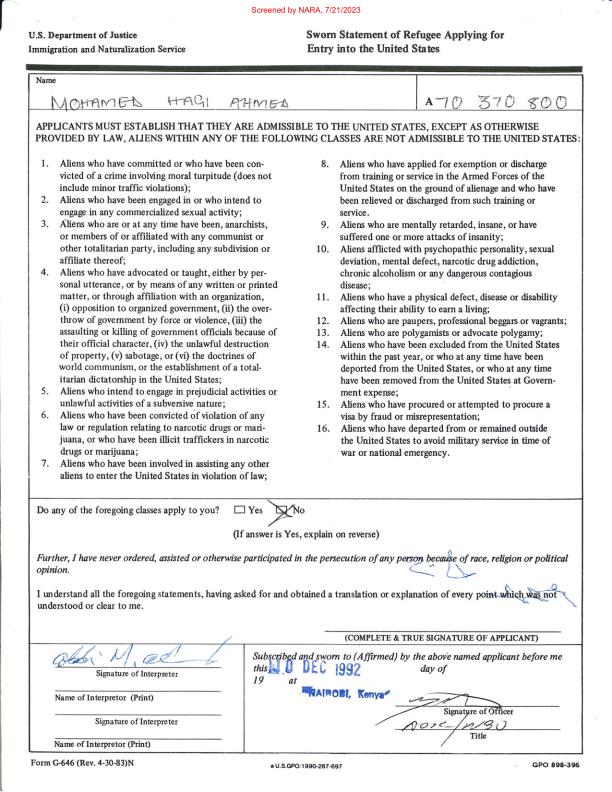 Screened by NARA, 7/21/2023
U.S. Department of Justice
Immigration and Naturalization Service
Sworn Statement of Refugee Applying for
Entry into the United States
Name
MOHAMED HAGI AHMED
A 70 370 800
APPLICANTS MUST ESTABLISH THAT THEY ARE ADMISSIBLE TO THE UNITED STATES, EXCEPT AS OTHERWISE
PROVIDED BY LAW, ALIENS WITHIN ANY OF THE FOLLOWING CLASSES ARE NOT ADMISSIBLE TO THE UNITED STATES:
1. Aliens who have committed or who have been con-
victed of a crime involving moral turpitude (does not
include minor traffic violations);
2. Aliens who have been engaged in or who intend to
engage in any commercialized sexual activity;
3. Aliens who are or at any time have been, anarchists,
or members of or affiliated with any communist or
other totalitarian party, including any subdivision or
affiliate thereof;
4. Aliens who have advocated or taught, either by per-
sonal utterance, or by means of any written or printed
matter, or through affiliation with an organization,
(i) opposition to organized government, (ii) the over-
throw of government by force or violence, (iii) the
assaulting or killing of government officials because of
their official character, (iv) the unlawful destruction
of property, (v) sabotage, or (vi) the doctrines of
world communism, or the establishment of a total-
itarian dictatorship in the United States;
5. Aliens who intend to engage in prejudicial activities or
unlawful activities of a subversive nature;
6. Aliens who have been convicted of violation of any
law or regulation relating to narcotic drugs or mari-
juana, or who have been illicit traffickers in narcotic
drugs or marijuana;
7. Aliens who have been involved in assisting any other
aliens to enter the United States in violation of law;
8. Aliens who have applied for exemption or discharge
from training or service in the Armed Forces of the
United States on the ground of alienage and who have
been relieved or discharged from such training or
service.
9. Aliens who are mentally retarded, insane, or have
suffered one or more attacks of insanity;
10. Aliens afflicted with psychopathic personality, sexual
deviation, mental defect, narcotic drug addiction,
chronic alcoholism or any dangerous contagious
disease;
11. Aliens who have a physical defect, disease or disability
affecting their ability to earn a living;
12. Aliens who are paupers, professional beggars or vagrants;
13. Aliens who are polygamists or advocate polygamy.
14. Aliens who have been excluded from the United States
within the past year, or who at any time have been
deported from the United States, or who at any time
have been removed from the United States at Govern-
ment expense;
15. Aliens who have procured or attempted to procure a
visa by fraud or misrepresentation;
16. Aliens who have departed from or remained outside
the United States to avoid military service in time of
war or national emergency.
Do any of the foregoing classes apply to you? Yes No
(If answer is Yes, explain on reverse)
Further, I have never ordered, assisted or otherwise participated in the persecution of any person because of race, religion or political
opinion.
I understand all the foregoing statements, having asked for and obtained a translation or explanation of every point which was not
understood or clear to me.
(COMPLETE & TRUE SIGNATURE OF APPLICANT)
Signature of Interpreter
Name of Interpreter (Print)
Signature of Interpreter
Name of Interpreter (Print)
Subscribed and sworn to (Affirmed) by the above named applicant before me
this 10 DEC 1992 day of
19 at
NAIROBI, Kenya
Signature of Officer
Title
Form G-646 (Rev. 4-30-83)N
U.S.GPO:1990-267-697
GPO 898-396